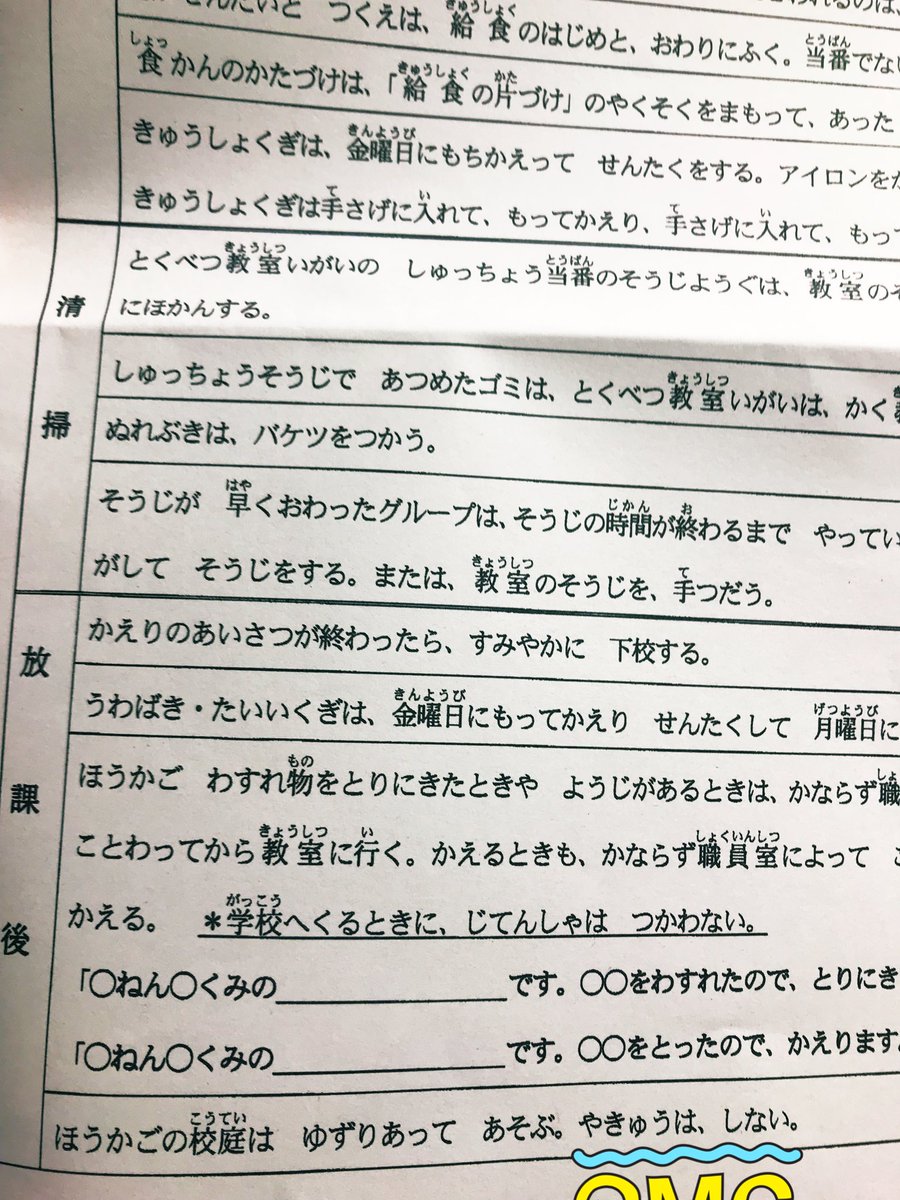 せんたいと　つくえは、給食のはじめと、おわりにふく。当番でない
食かんのかたづけは、「給食の片づけ」のやくそくをまもって、あった
きゅうしょくぎは、金曜日にもちかえって　せんたくをする。アイロンをか
きゅうしょくぎは手さげに入れて、もってかえり、手さげに入れて、もって
清掃
とくべつ教室いがいの　しゅっちょう当番のそうじようぐは、教室のそ
にほかんする。
しゅっちょうそうじで　あつめたゴミは、とくべつ教室いがいは、かく
ぬれぶきは、バケツをつかう。
そうじが　早くおわったグループは、そうじの時間が終わるまで　やってい
がして　そうじをする。または、教室のそうじを、手つだう。
放課後
かえりのあいさつが終わったら、すみやかに　下校する。
うわばき・たいいくぎは、金曜日にもってかえり　せんたくして　月曜日に
ほうかご　わすれ物をとりにきたときや　ようじがあるときは、かならず職
ことわってから教室に行く。かえるときも、かならず職員室によって　こ
かえる。　＊学校へくるときに、じてんしゃは　つかわない。
「〇ねん〇くみの＿＿＿＿＿＿＿＿です。〇〇をわすれたので、とりにき
「〇ねん〇くみの＿＿＿＿＿＿＿＿です。〇〇をとったので、かえります。
ほうかごの校庭は　ゆずりあって　あそぶ。やきゅうは、しない。